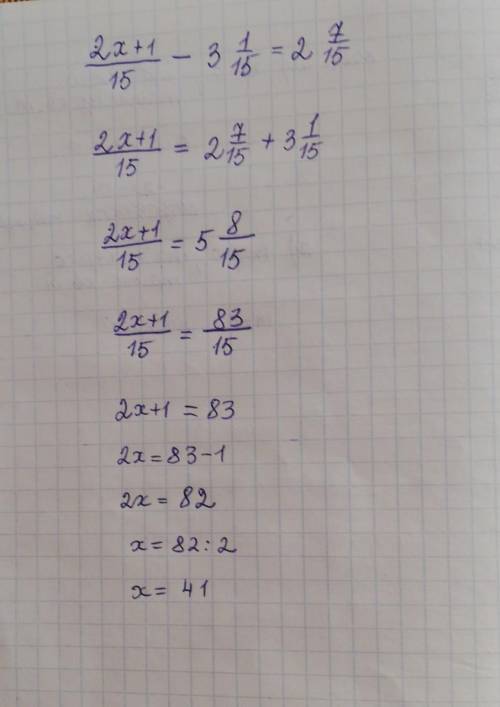 (2x+1)/15 − 3 1/15 = 2 7/15
(2x+1)/15 = 2 7/15 + 3 1/15
(2x+1)/15 = 5 8/15
(2x+1)/15 = 83/15
2x+1 = 83
2x = 83−1
2x = 82
x = 82:2
x = 41